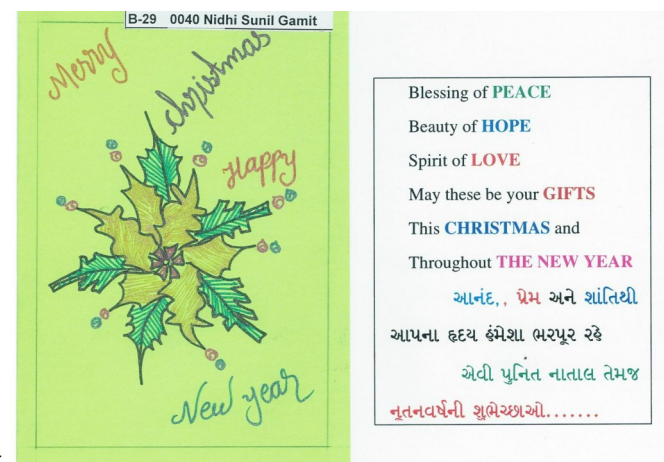 B-29 0040 Nidhi Sunil Gamit
Merry
christmas
Happy
New year
Blessing of PEACE
Beauty of HOPE
Spirit of LOVE
May these be your GIFTS
This CHRISTMAS and
Throughout THE NEW YEAR
આનંદ,, પ્રેમ અને શાંતિથી
આપના હૃદય હંમેશા ભરપૂર રહે
એવી પુનિત નાતાલ તેમજ
નૂતનવર્ષની શુભેચ્છાઓ.......